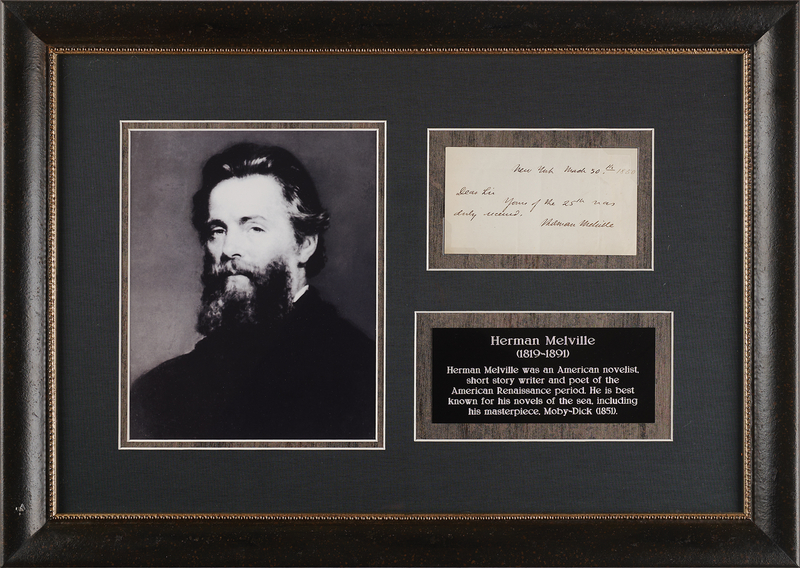 New York March 30th
Dear Sir
Yours of the 25th was
duly received.
Herman Melville
Herman Melville
(1819-1891)
Herman Melville was an American novelist,
short story writer and poet of the
American Renaissance period. He is best
known for his novels of the sea, including
his masterpiece, Moby-Dick (1851).